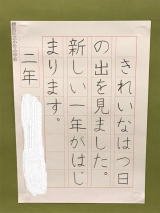 きれいなはつ日
の出を見ました。
新しい一年がはじ
まります。
二年